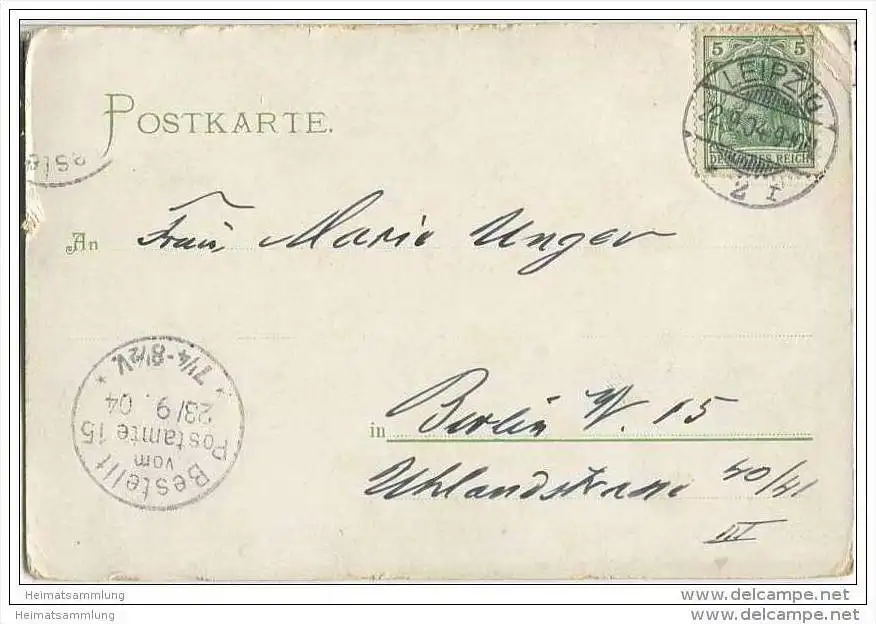 POSTKARTE.
5 5
DEUTSCHES REICH
LEIPZIG
22.9.04. 9-10
2 I
An Frau Marie Unger
in Berlin W. 15
Uhlandstrasse 40/41
III
Bestellt
vom
Postamte 15
23/9.04
7 1/4-8 1/2V.
Heimatsammlung
www.delcampe.net
Heimatsammlung
www.delcampe.net